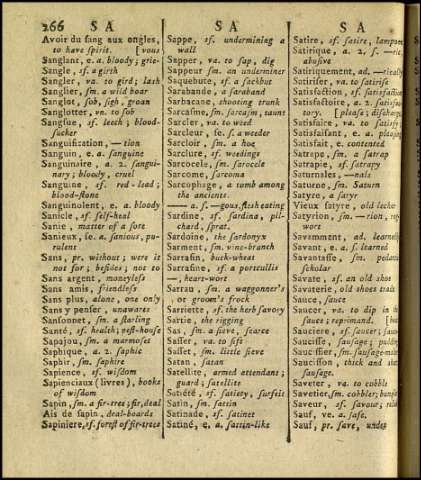 266 S A S A S A
Avoir du sang aux ongles,
to have spirit. [vous
Sanglant, e a. bloody; grie-
Sangle, sf. a girth
Sangler, va. to gird; lash
Sanglier, sm. a wild boar
Sanglot, sob, sigh, groan
Sanglotter, vn. to sob
Sangsue, sf. leech; blood-
sucker
Sanguification, —tion
Sanguin, e a. sanguine
Sanguinaire, a. 2. sangui-
nary; bloody, cruel
Sanguine, sf. red-lead;
blood-stone
Sanguinolent, e a. bloody
Sanicle, sf. self-heal
Sanie, matter of a sore
Sanieux, se a. sanious, pu-
rulent
Sans, pr. without; were it
not for; besides; not to
Sans argent, moneyless
Sans amis, friendless
Sans plus, alone, one only
Sans y penser, unawares
Sansonnet, sm. a starling
Santé, sf. health; pest-house
Sapajou, sm. a marmoset
Saphique, a. 2. saphic
Saphir, sm. saphire
Sapience, sf. wisdom
Sapienciaux (livres), books
of wisdom
Sapin, sm. a fir-tree; fir, deal
Ais de sapin, deal-boards
Sapiniere, sf. forest of fir-trees
Sappe, sf. undermining a
wall
Sapper, va. to sap, dig
Sappeur sm. an underminer
Saquebute, sf. a sackbut
Sarabande, a saraband
Sarbacane, shooting trunk
Sarcasme, sm. sarcasm, taunt
Sarcler, va. to weed
Sarcleur, se s. a weeder
Sarcloir, sm. a hoe
Sarclure, sf. weedings
Sarcocele, sm. sarcocele
Sarcome, sarcoma
Sarcophage, a tomb among
the ancients
—— a. s. —gous, flesh eating
Sardine, sf. sardina, pil-
chard, sprat.
Sardoine, the sardonyx
Sarment, sm. vine-branch
Sarrasin, buck-wheat
Sarrasine, sf. a portcullis
—, hearts-wort
Sarrau, sm. a waggonner's
or groom's frock
Sarriette, sf. the herb savory
Sartie, the rigging
Sas, sm. a sieve, searce
Sasser, va. to sift
Sasset, sm. little sieve
Satan, satan
Satellite, armed attendant;
guard; satellite
Satiété, sf. satiety, surfeit
Satin, sm. sattin
Satinade, sf. satinet
Satiné, e a. sattin-like
Satire, sf. satire, lampoon
Satirique, a. 2. s. —
abusive
Satiriquement, ad. —
Satiriser, va. to satirise
Satisfaction, sf. satisfaction
Satisfactoire, a. 2.
tory. [please;
Satisfaire, va. to satisfy
Satisfaisant, e a.
Satisfait, e contented
Satrape, sm. a satrap
Satrapie, sf. satrapy
Saturnales, —nals
Saturne, sm. Saturn
Satyre, a satyr
Vieux satyre, old
Satyrion, sm. —rion,
wort
Savamment, ad.
Savant, e a. s. learned
Savantasse, sm.
scholar
Savate, sf. an old shoe
Savaterie, old shoes
Sauce, sauce
Saucer, va. to dip in
sauce; reprimand.
Sauciere, sf. saucer;
Saucisse, sausage;
Saucissier, sm. sausage-
Saucisson, thick and
sausage.
Saveter, va. to cobble
Savetier, sm. cobbler;
Saveur, sf. savour;
Sauf, ve a. safe.
Sauf, pr. save, under